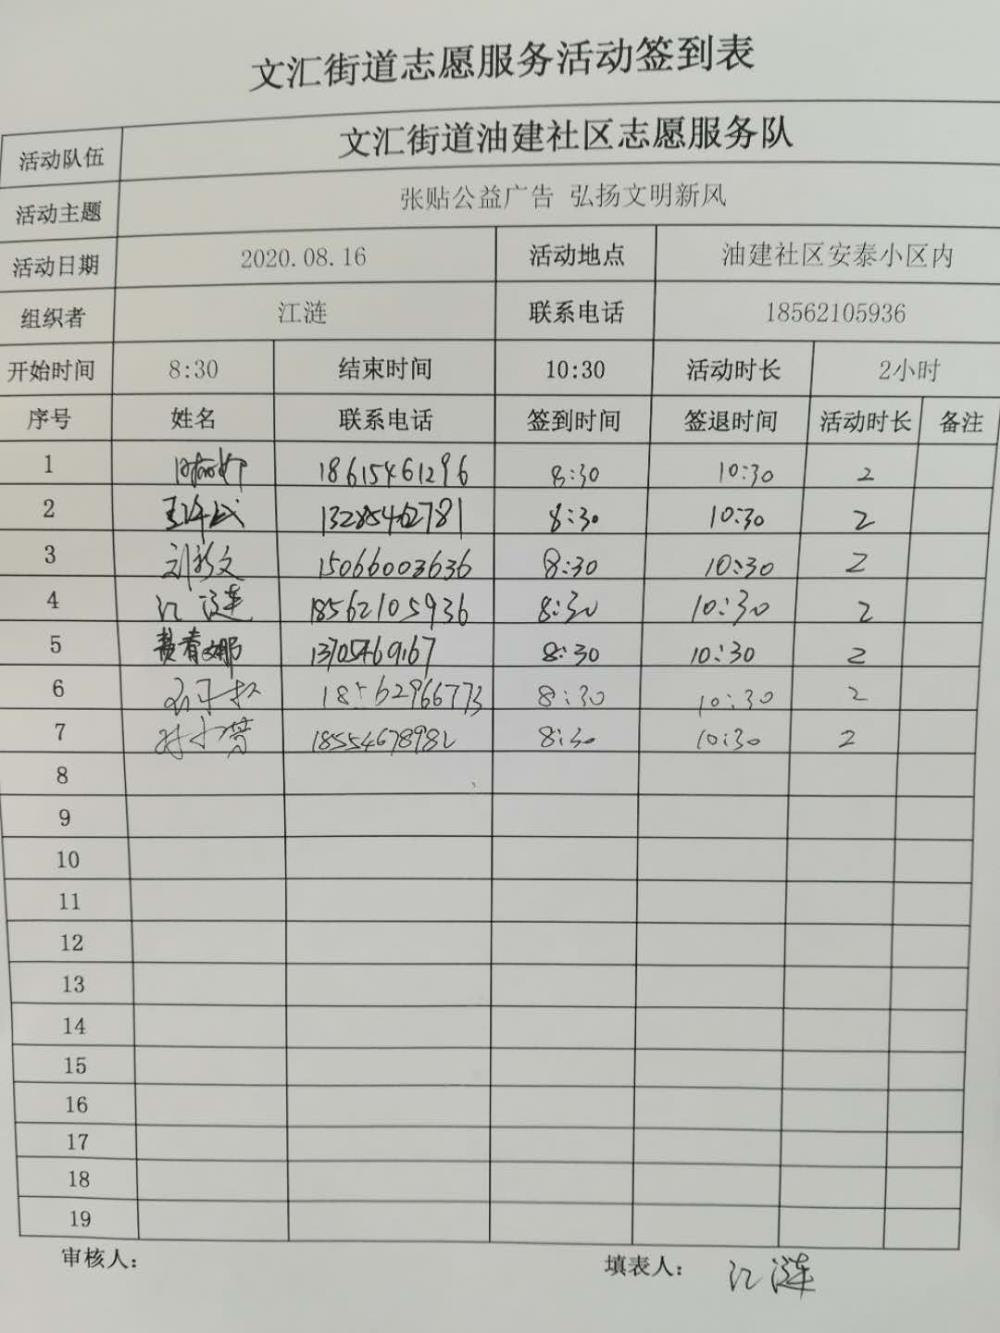 文汇街道志愿服务活动签到表
活动队伍 文汇街道油建社区志愿服务队
活动主题 张贴公益广告 弘扬文明新风
活动日期 2020.08.16 活动地点 油建社区安泰小区内
组织者 江涟 联系电话 18562105936
开始时间 8:30 结束时间 10:30 活动时长 2小时
序号 姓名 联系电话 签到时间 签退时间 活动时长 备注
1 18615461296 8:30 10:30 2
2 13285462781 8:30 10:30 2
3 刘新文 15066003636 8:30 10:30 2
4 江涟 18562105936 8:30 10:30 2
5 黄青娜 13705469167 8:30 10:30 2
6 18562966773 8:30 10:30 2
7 18554678982 8:30 10:30 2
8
9
10
11
12
13
14
15
16
17
18
19
审核人: 填表人: 江涟